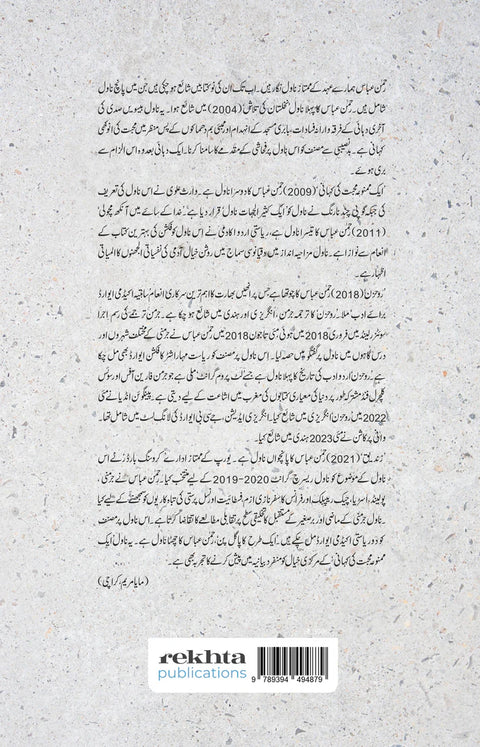 رحمٰن عباس ہمارے عہد کے ممتاز ناول نگار ہیں۔ اب تک ان کی نو کتابیں شائع ہو چکی ہیں جن میں پانچ ناول
شامل ہیں۔ رحمٰن عباس کا پہلا ناول 'نخلستان کی تلاش' (2004) میں شائع ہوا۔ یہ ناول بیسویں صدی کی
آخری دہائی کے فرقہ وارانہ فسادات، بابری مسجد کے انہدام اور ممبئی بم دھماکوں کے پس منظر میں محبت کی انوکھی
کہانی ہے۔ بدنصیبی سے مصنف کو اس ناول پر فحاشی کے مقدمے کا سامنا کرنا۔ ایک دہائی بعد وہ اس الزام سے
بری ہوئے۔
'ایک ممنوعہ محبت کی کہانی' (2009) رحمٰن عباس کا دوسرا ناول ہے۔ وارث علوی نے اس ناول کی تعریف
کی جبکہ گوپی چند نارنگ نے ناول کو 'ایک کثیر الجہات ناول' قرار دیا ہے۔ 'خدا کے سائے میں آنکھ مچولی'
(2011) رحمٰن عباس کا تیسرا ناول ہے، ریاستی اردو اکادمی نے اس ناول کو فکشن کی بہترین کتاب کے
انعام سے نوازا ہے۔ ناول مزاحیہ انداز میں دقیانوسی سماج میں روشن خیال آدمی کی نفسیاتی الجھنوں کا المیاتی
اظہار ہے۔
'روحزن' (2018) رحمٰن عباس کا چوتھا ہے جس پر انھیں بھارت کا اہم ترین سرکاری انعام 'ساہتیہ اکیڈمی ایوارڈ
برائے ادب' ملا۔ 'روحزن' کا ترجمہ جرمن، انگریزی اور ہندی میں شائع ہوا ہے۔ جرمن ترجمے کی رسم اجرا
سوئٹزرلینڈ میں فروری 2018 میں ہوئی، مئی تا جون 2018 میں رحمٰن عباس نے جرمنی کے مختلف شہروں اور
درس گاہوں میں ناول پر گفتگو میں حصہ لیا۔ اس ناول پر مصنف کو ریاست مہاراشٹر کا فکشن ایوارڈ بھی مل چکا
ہے۔ 'روحزن' اردو ادب کی تاریخ کا پہلا ناول ہے جسے 'لٹ پروم گرانٹ' ملی ہے جو جرمن فارین آفس اور سوئس
کلچرل فنڈ مشترکہ طور پر دنیا کی معیاری کتابوں کی مغرب میں اشاعت کے لیے دیتی ہے۔ پینگوئن انڈیا نے مئی
2022 میں 'روحزن' انگریزی میں شائع کیا۔ انگریزی ایڈیشن، جے سی بی ایوارڈ کی لانگ لسٹ میں شامل تھا۔
وانی پرکاشن نے مئی 2023 ہندی میں شائع کیا۔
'زندیق' (2021) رحمٰن عباس کا پانچواں ناول ہے۔ یورپ کے ممتاز ادارے 'کروسنگ بارڈرز' نے اس
ناول کے موضوع کو ناول ریسرچ گرانٹ 2020-2019 کے لیے منتخب کیا۔ رحمٰن عباس نے جرمنی،
پولینڈ، آسٹریا، چیک ریپبلک اور فرانس کا سفر نازی ازم، فسطائیت اور نسل پرستی کی تباہ کاریوں کو سمجھنے کے لیے کیا
۔ ناول جرمنی کے ماضی اور برصغیر کے مستقبل کا تخلیقی سطح پر تقابلی مطالعے کا تقاضا کرتا ہے۔ اس ناول پر مصنف
کو دو ریاستی اکیڈمی ایوارڈ مل چکے ہیں۔ 'ایک طرح کا پاگل پن' رحمٰن عباس کا چھٹا ناول ہے۔ یہ ناول 'ایک
ممنوعہ محبت کی کہانی' کے مرکزی خیال کو منفرد بیانیہ میں پیش کرنے کا تجربہ بھی ہے۔
(مایا مریم، کراچی)
rekhta
publications
9 789394 494879